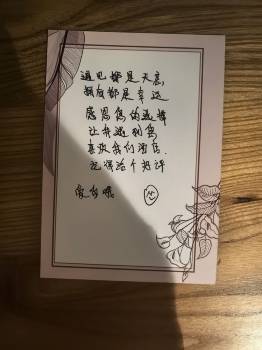 遇见都是天意，
拥有都是幸运
感恩您的选择
让我遇到您
喜欢我们酒店.
记得给个好评
爱你哦